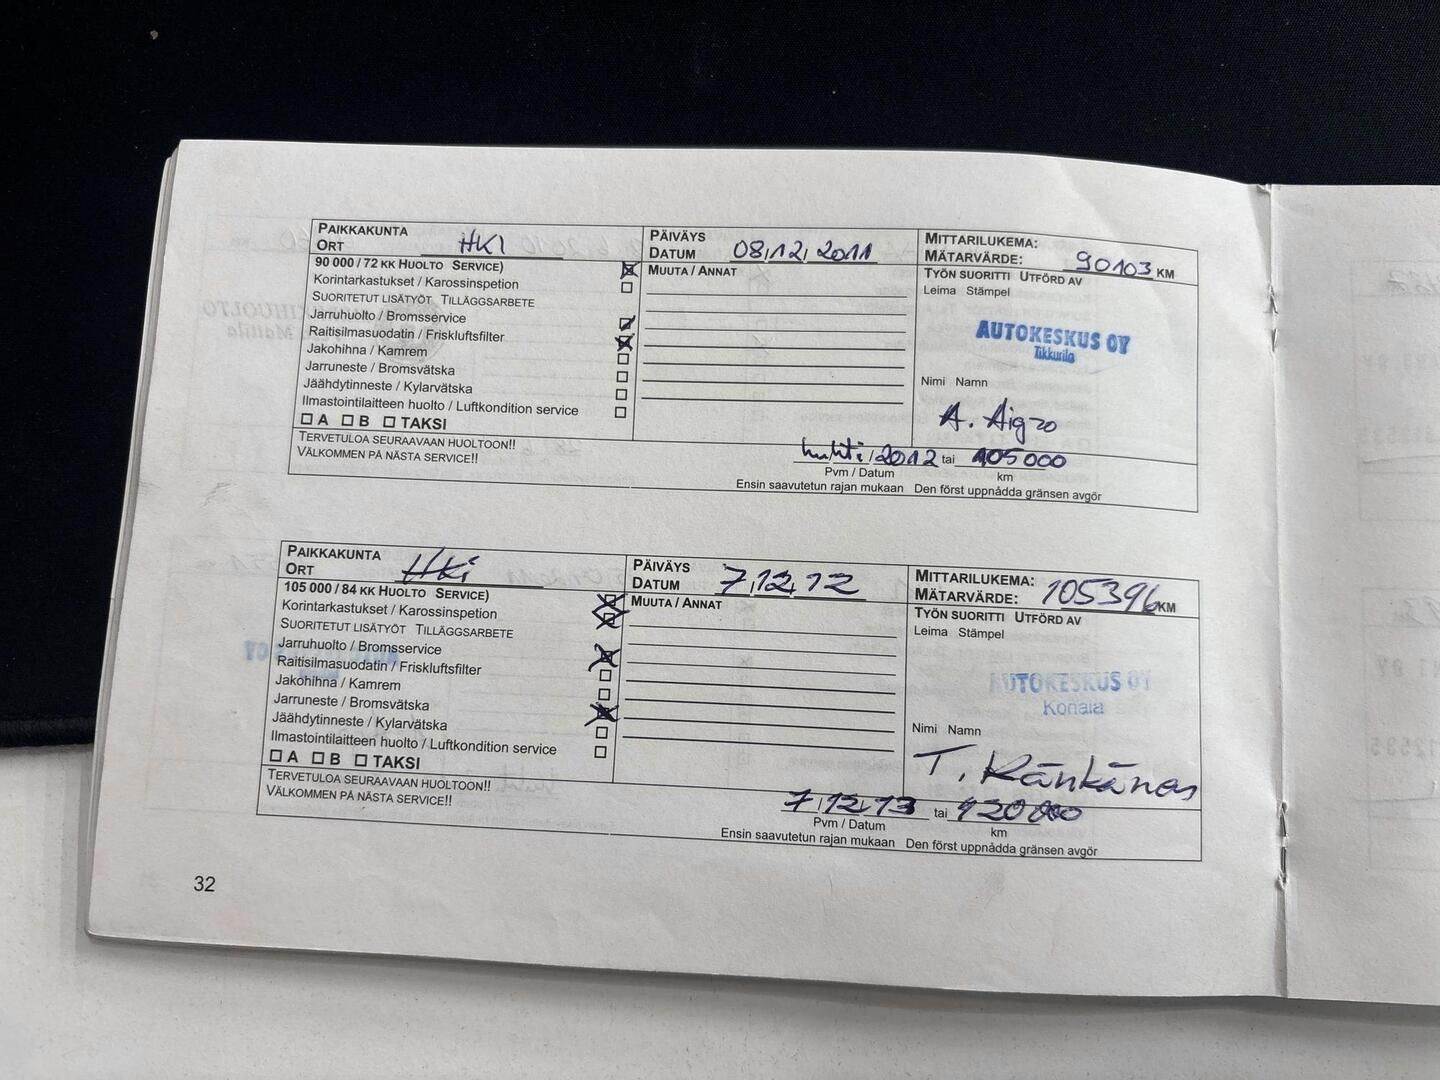 PAIKKAKUNTA
ORT HKI
PÄIVÄYS
DATUM 08,12, 2011
MITTARILUKEMA:
MÄTARVÄRDE: 90103 KM
90 000 / 72 KK HUOLTO SERVICE)
Korintarkastukset / Karossinspetion
SUORITETUT LISÄTYÖT TILLÄGGSARBETE
Jarruhuolto / Bromsservice
Raitisilmasuodatin / Friskluftsfilter
Jakohihna / Kamrem
Jarruneste / Bromsvätska
Jäähdytinneste / Kylarvätska
Ilmastointilaitteen huolto / Luftkondition service
A B TAKSI
MUUTA / ANNAT
TYÖN SUORITTI UTFÖRD AV
Leima Stämpel
AUTOKESKUS OY
Tikkurila
Nimi Namn
A. Aigro
TERVETULOA SEURAAVAAN HUOLTOON!!
VÄLKOMMEN PÅ NÄSTA SERVICE!!
huhti / 2012 tai 105000
Pvm / Datum km
Ensin saavutetun rajan mukaan Den först uppnådda gränsen avgör
PAIKKAKUNTA
ORT HKi
PÄIVÄYS
DATUM 7,12,12
MITTARILUKEMA:
MÄTARVÄRDE: 105396 KM
105 000 / 84 KK HUOLTO SERVICE)
Korintarkastukset / Karossinspetion
SUORITETUT LISÄTYÖT TILLÄGGSARBETE
Jarruhuolto / Bromsservice
Raitisilmasuodatin / Friskluftsfilter
Jakohihna / Kamrem
Jarruneste / Bromsvätska
Jäähdytinneste / Kylarvätska
Ilmastointilaitteen huolto / Luftkondition service
A B TAKSI
MUUTA / ANNAT
TYÖN SUORITTI UTFÖRD AV
Leima Stämpel
AUTOKESKUS OY
Konala
Nimi Namn
T. Känkänen
TERVETULOA SEURAAVAAN HUOLTOON!!
VÄLKOMMEN PÅ NÄSTA SERVICE!!
7,12,13 tai 120000
Pvm / Datum km
Ensin saavutetun rajan mukaan Den först uppnådda gränsen avgör
32